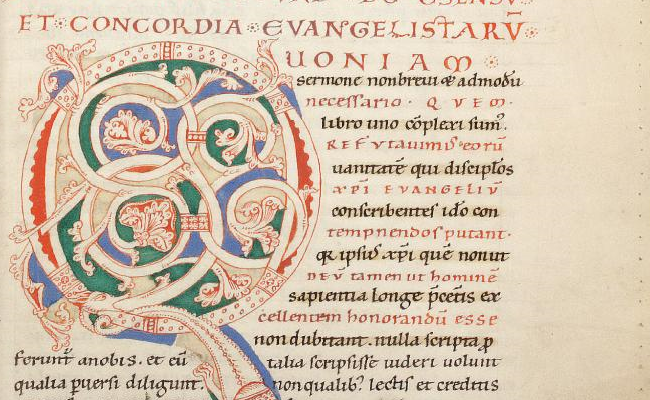 ET CONCORDIA EVANGELISTARŪ
QUONIAM
sermone nonbreui & admodū
necessario. QUEM
libro uno cōplexi sum᷒.
REFUtauim᷒ eorū
uanitatē qui discip̄los
xp̄i EUANGELIŪ
conscribentes idō con
tempnendos putant.
qr̄ ipsi᷒ xp̄i quē nonut
DEŪ tamen ut hominē
sapientia longe p̄cetis ex
cellentem honorandū esse
non dubitant. nulla scripta ꝓ
ferunt᷑ anobis. et eū talia scripsisse uideri uolunt
qualia ꝑuersi diligunt. non qualib᷒ lectis et creditis